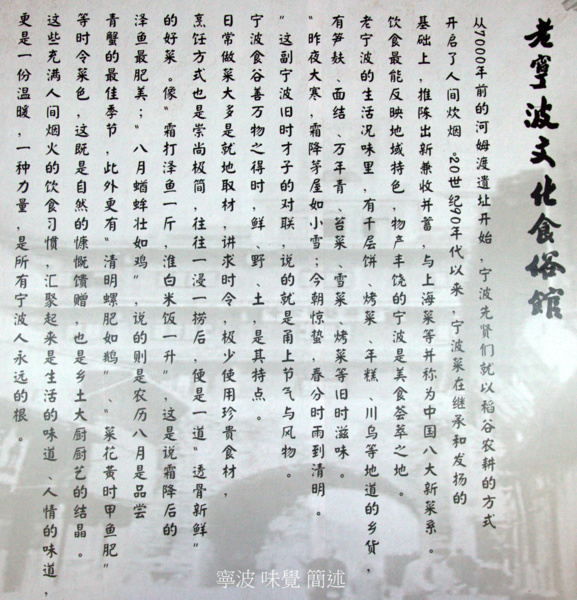 老寧波文化食俗館
从7000年前的河姆渡遗址开始，宁波先贤们就以稻谷农耕的方式
开启了人间炊烟。20世纪90年代以来，宁波菜在继承和发扬的
基础上，推陈出新兼收并蓄，与上海菜等并称为中国八大新菜系。
饮食最能反映地域特色，物产丰饶的宁波是美食荟萃之地。
老宁波的生活况味里，有千层饼、烤菜、年糕、川乌等地道的乡货，
有笋麸、面结、万年青、苔菜、雪菜、烤菜等旧时滋味。
“昨夜大寒，霜降茅屋如小雪；今朝惊蛰，春分时雨到清明。
”这副宁波旧时才子的对联，说的就是甬上节气与风物。
宁波食谷善万物之得时，鲜、野、土，是其特点。
日常做菜大多是就地取材，讲求时令，极少使用珍贵食材，
烹饪方式也是崇尚极简，往往一浸一捞后，便是一道“透骨新鲜”
的好菜。像“霜打泽鱼一斤，淮白米饭一升”，这是说霜降后的
泽鱼最肥美；“八月蝤蛑壮如鸡”，说的则是农历八月是品尝
青蟹的最佳季节，此外更有“清明螺肥如鹅”、“菜花黄时甲鱼肥”
等时令菜色，这既是自然的慷慨馈赠，也是乡土大厨厨艺的结晶。
这些充满人间烟火的饮食习惯，汇聚起来是生活的味道、人情的味道，
更是一份温暖，一种力量，是所有宁波人永远的根。
寧波 味覺 簡述